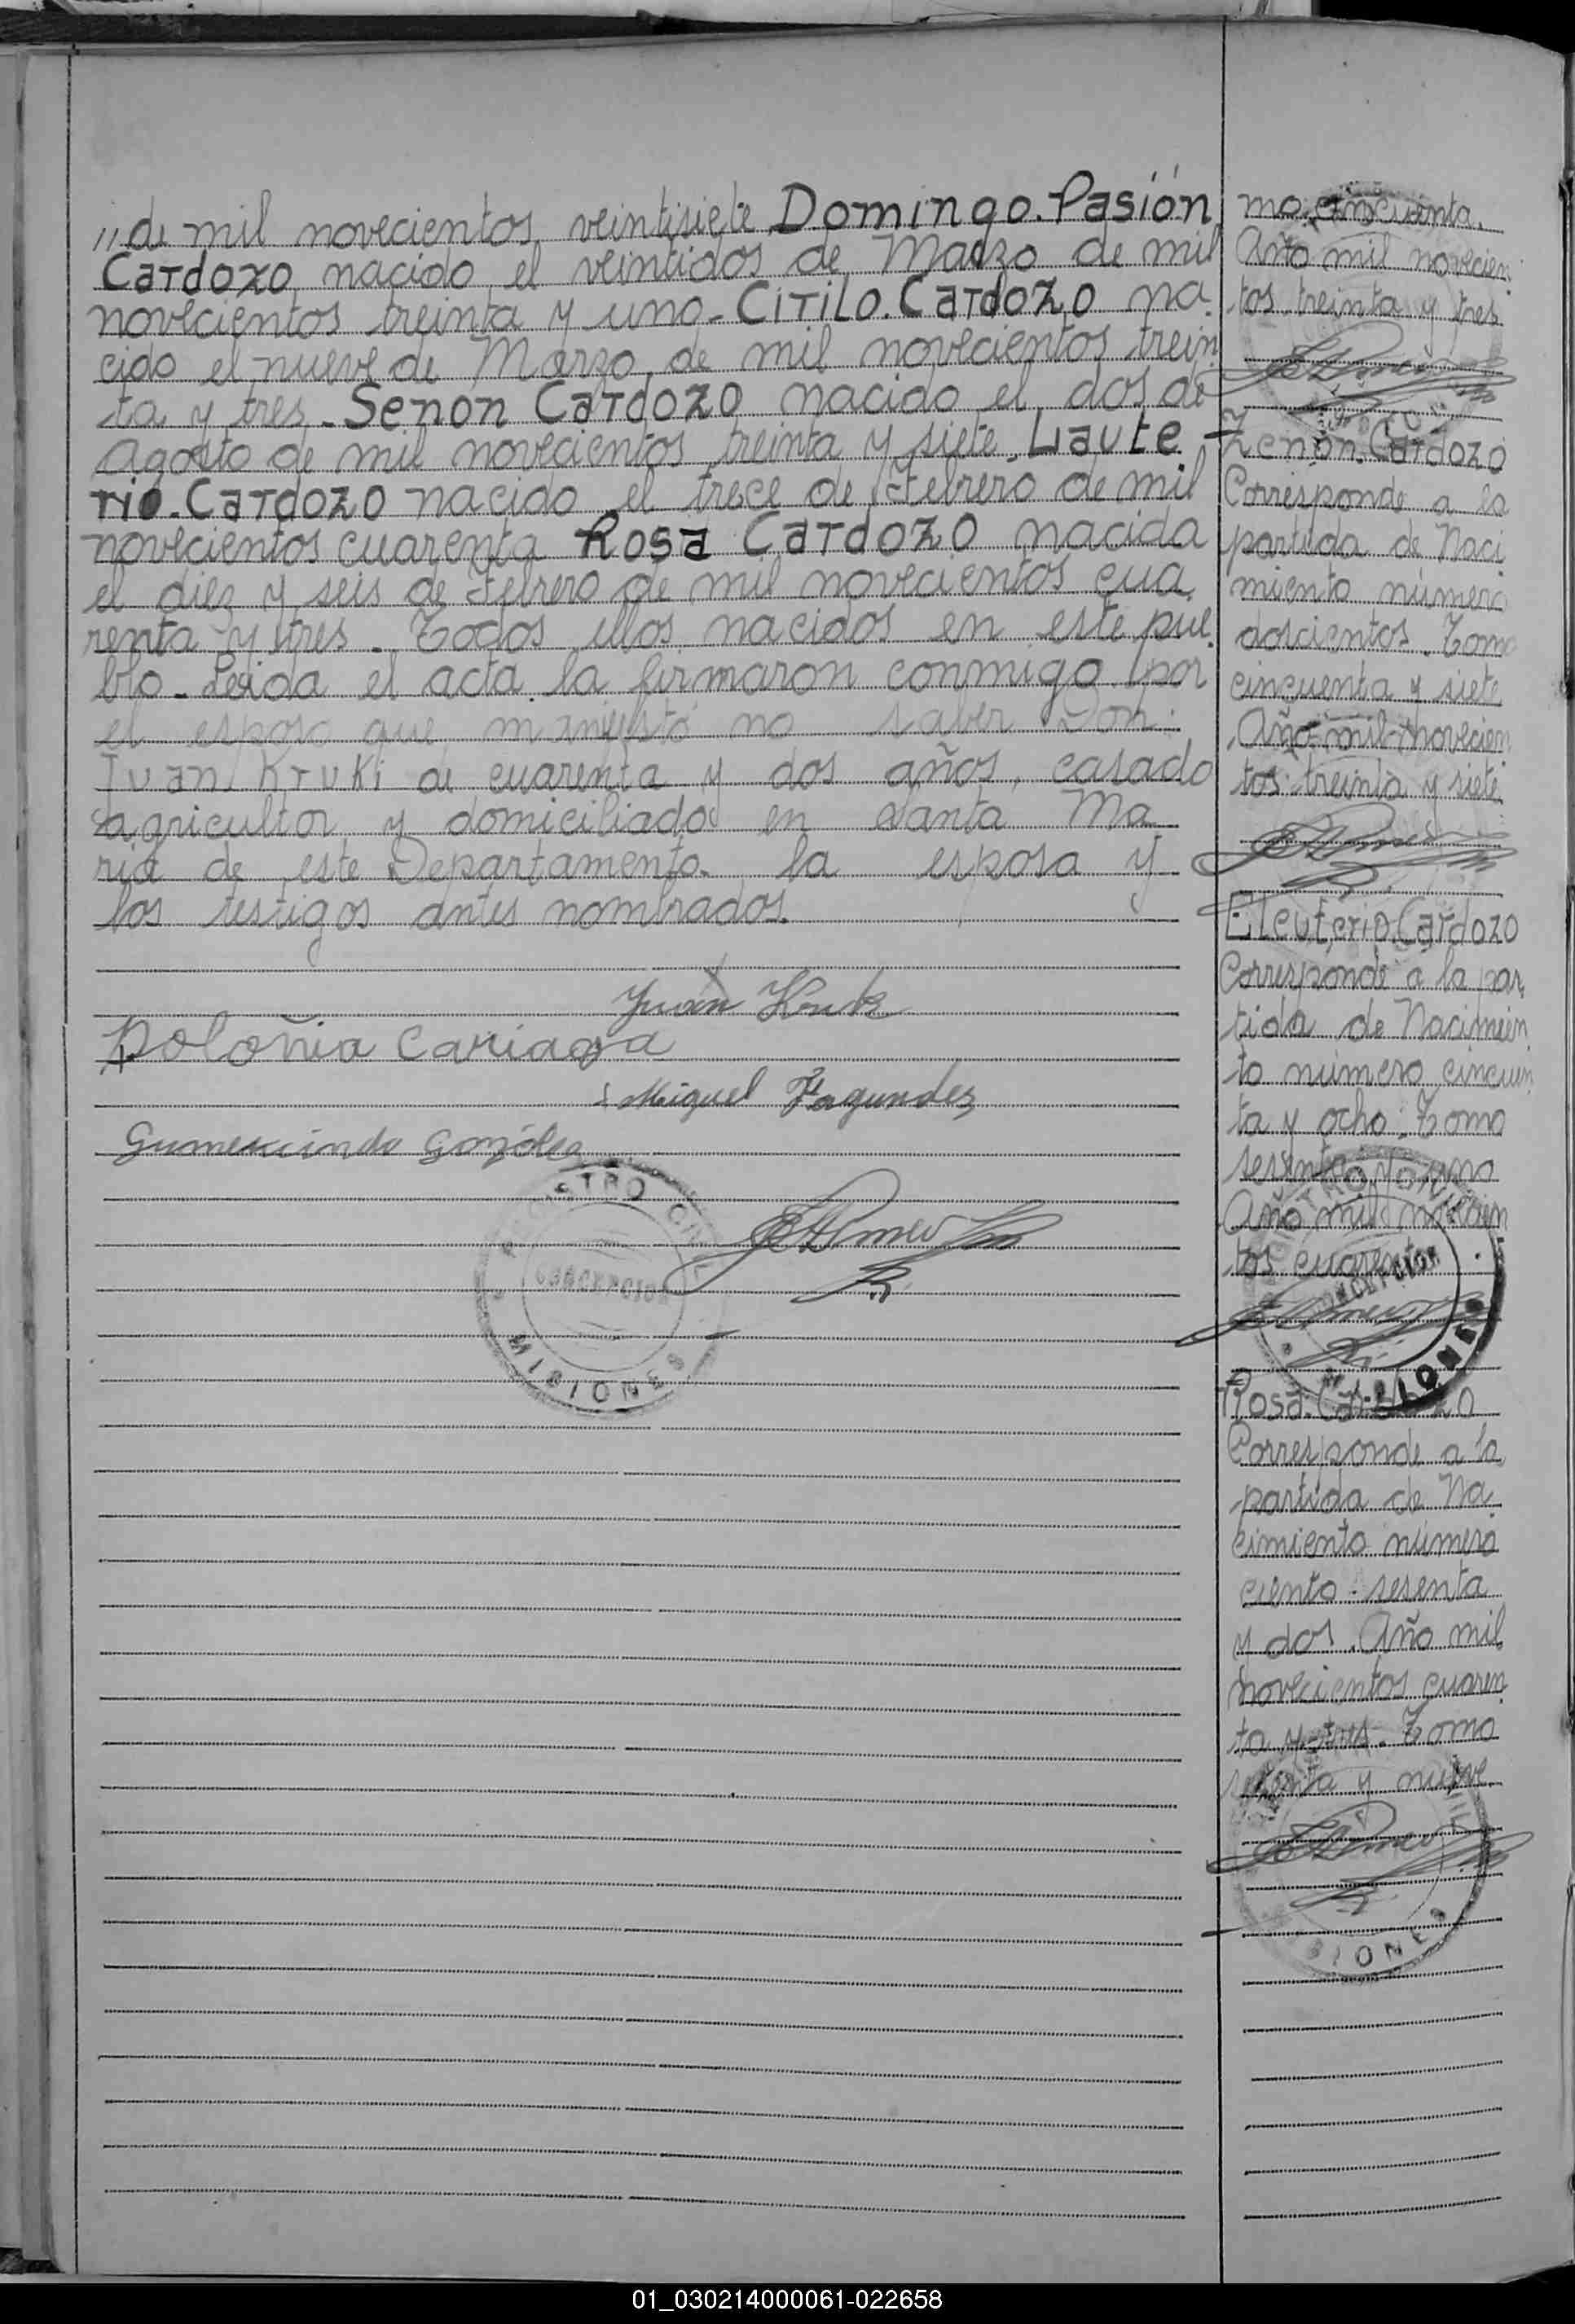 ,, de mil novecientos veintisiete Domingo. Pasión
Cardozo nacido el veintidos de Marzo de mil
novecientos treinta y uno - Cirilo. Cardozo na
cido el nueve de Marzo de mil novecientos trein
ta y tres - Senon Cardozo nacido el dos de
Agosto de mil novecientos treinta y siete. Liaute
rio. Cardozo nacido el trece de Febrero de mil
novecientos cuarenta Rosa Cardozo nacida
el diez y seis de Febrero de mil novecientos cua
renta y tres. Todos ellos nacidos en este pue
blo - Leida el acta la firmaron conmigo por
el esposo que manifestó no saber Don:
Juan Kruki de cuarenta y dos años, casado
agricultor y domiciliado en Santa Ma
ria de este Departamento. la esposa y
los testigos antes nombrados.
Juan Kruk
Poloñia Cariaga
Miguel Fagundez
Gumercindo Gonzólez
REGISTRO CIVIL
CONCEPCION
MISIONES
mo cincuenta.
Año mil novecien
tos treinta y tres
Zenón. Cardozo
Corresponde a la
partida de Naci
miento número
doscientos. Tomo
cincuenta y siete
Año mil novecien
tos treinta y siete
Eleuterio. Cardozo
Corresponde a la par
tida de Nacimien
to número cincuen
ta y ocho. Tomo
sesenta y uno
Año mil novecien
tos cuarenta
CONCEPCION
Rosa. Cardozo
Corresponde a la
partida de Na
cimiento número
ciento sesenta
y dos. Año mil
novecientos cuaren
ta y tres. Tomo
y nueve.
MISIONES
01_030214000061-022658